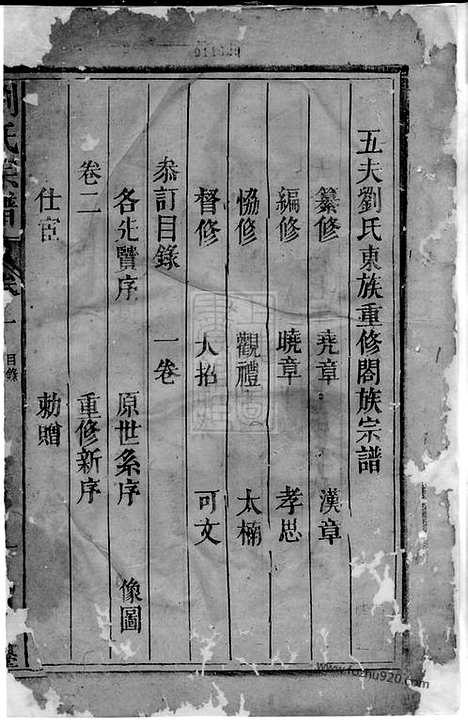 五夫劉氏東族重修閤族宗譜
纂修 堯章 漢章
編修 曉章 孝思
恊修 觀禮 太楠
督修 大招 可文
叅訂目錄 一卷
各先賢序 原世系序 像圖
卷二 重修新序
仕宦 勅贈
劉氏宗譜
目錄
www.fozhu920.com